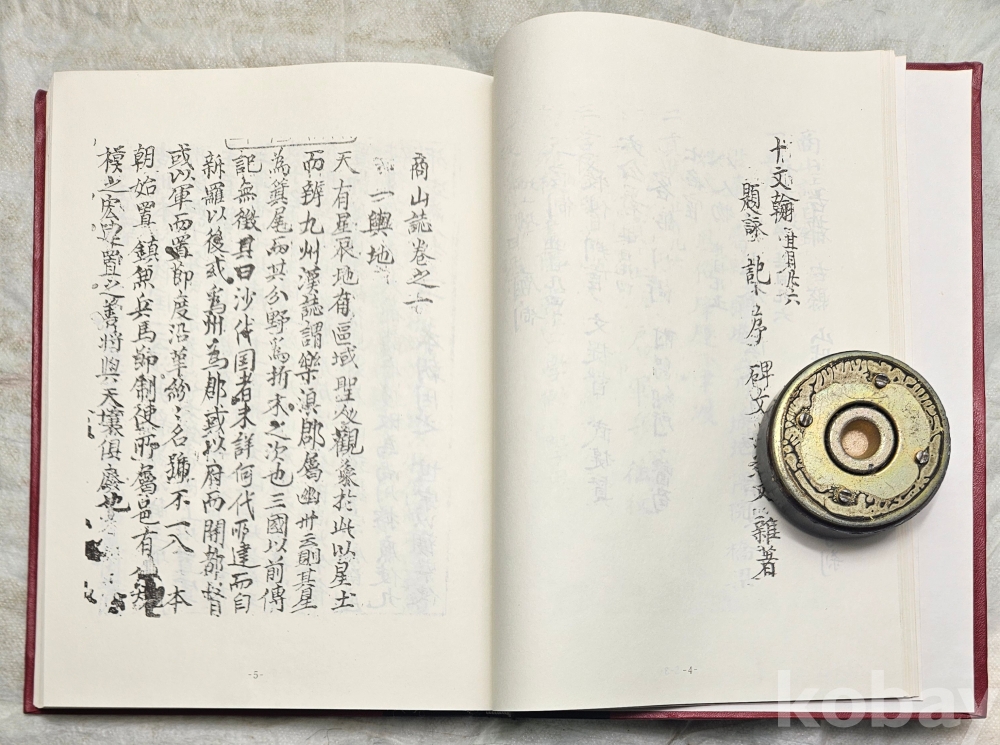 十文翰
題詠 記 序 碑文 雜著
-4-
商山誌卷之
一輿地
天有星辰地有區域聖人觀象於此以星土
而辨九州漢誌謂樂浪郡屬幽州則其星
為箕尾而其分野為折木之次也三國以前傳
記無徵其曰沙伐国者未詳何代所建而自
新羅以後或為州為郡或以府而開都督
或以軍而置節度沿革紛〻名號不一入 本
朝始置鎮兼兵馬節制使所屬邑有
模之宏 置之善將與天壤俱廢也
-5-
kobay